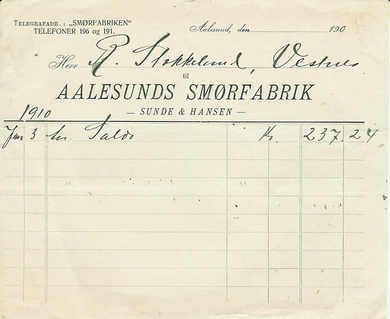 TELEGRAFADR.: „SMØRFABRIKEN"
TELEFONER 196 og 191.
Aalesund, den 190
Herr R. Stokkeland, Vestnes
til
AALESUNDS SMØRFABRIK
— SUNDE & HANSEN —
1910
Jan 3 An Saldo Kr. 237.24